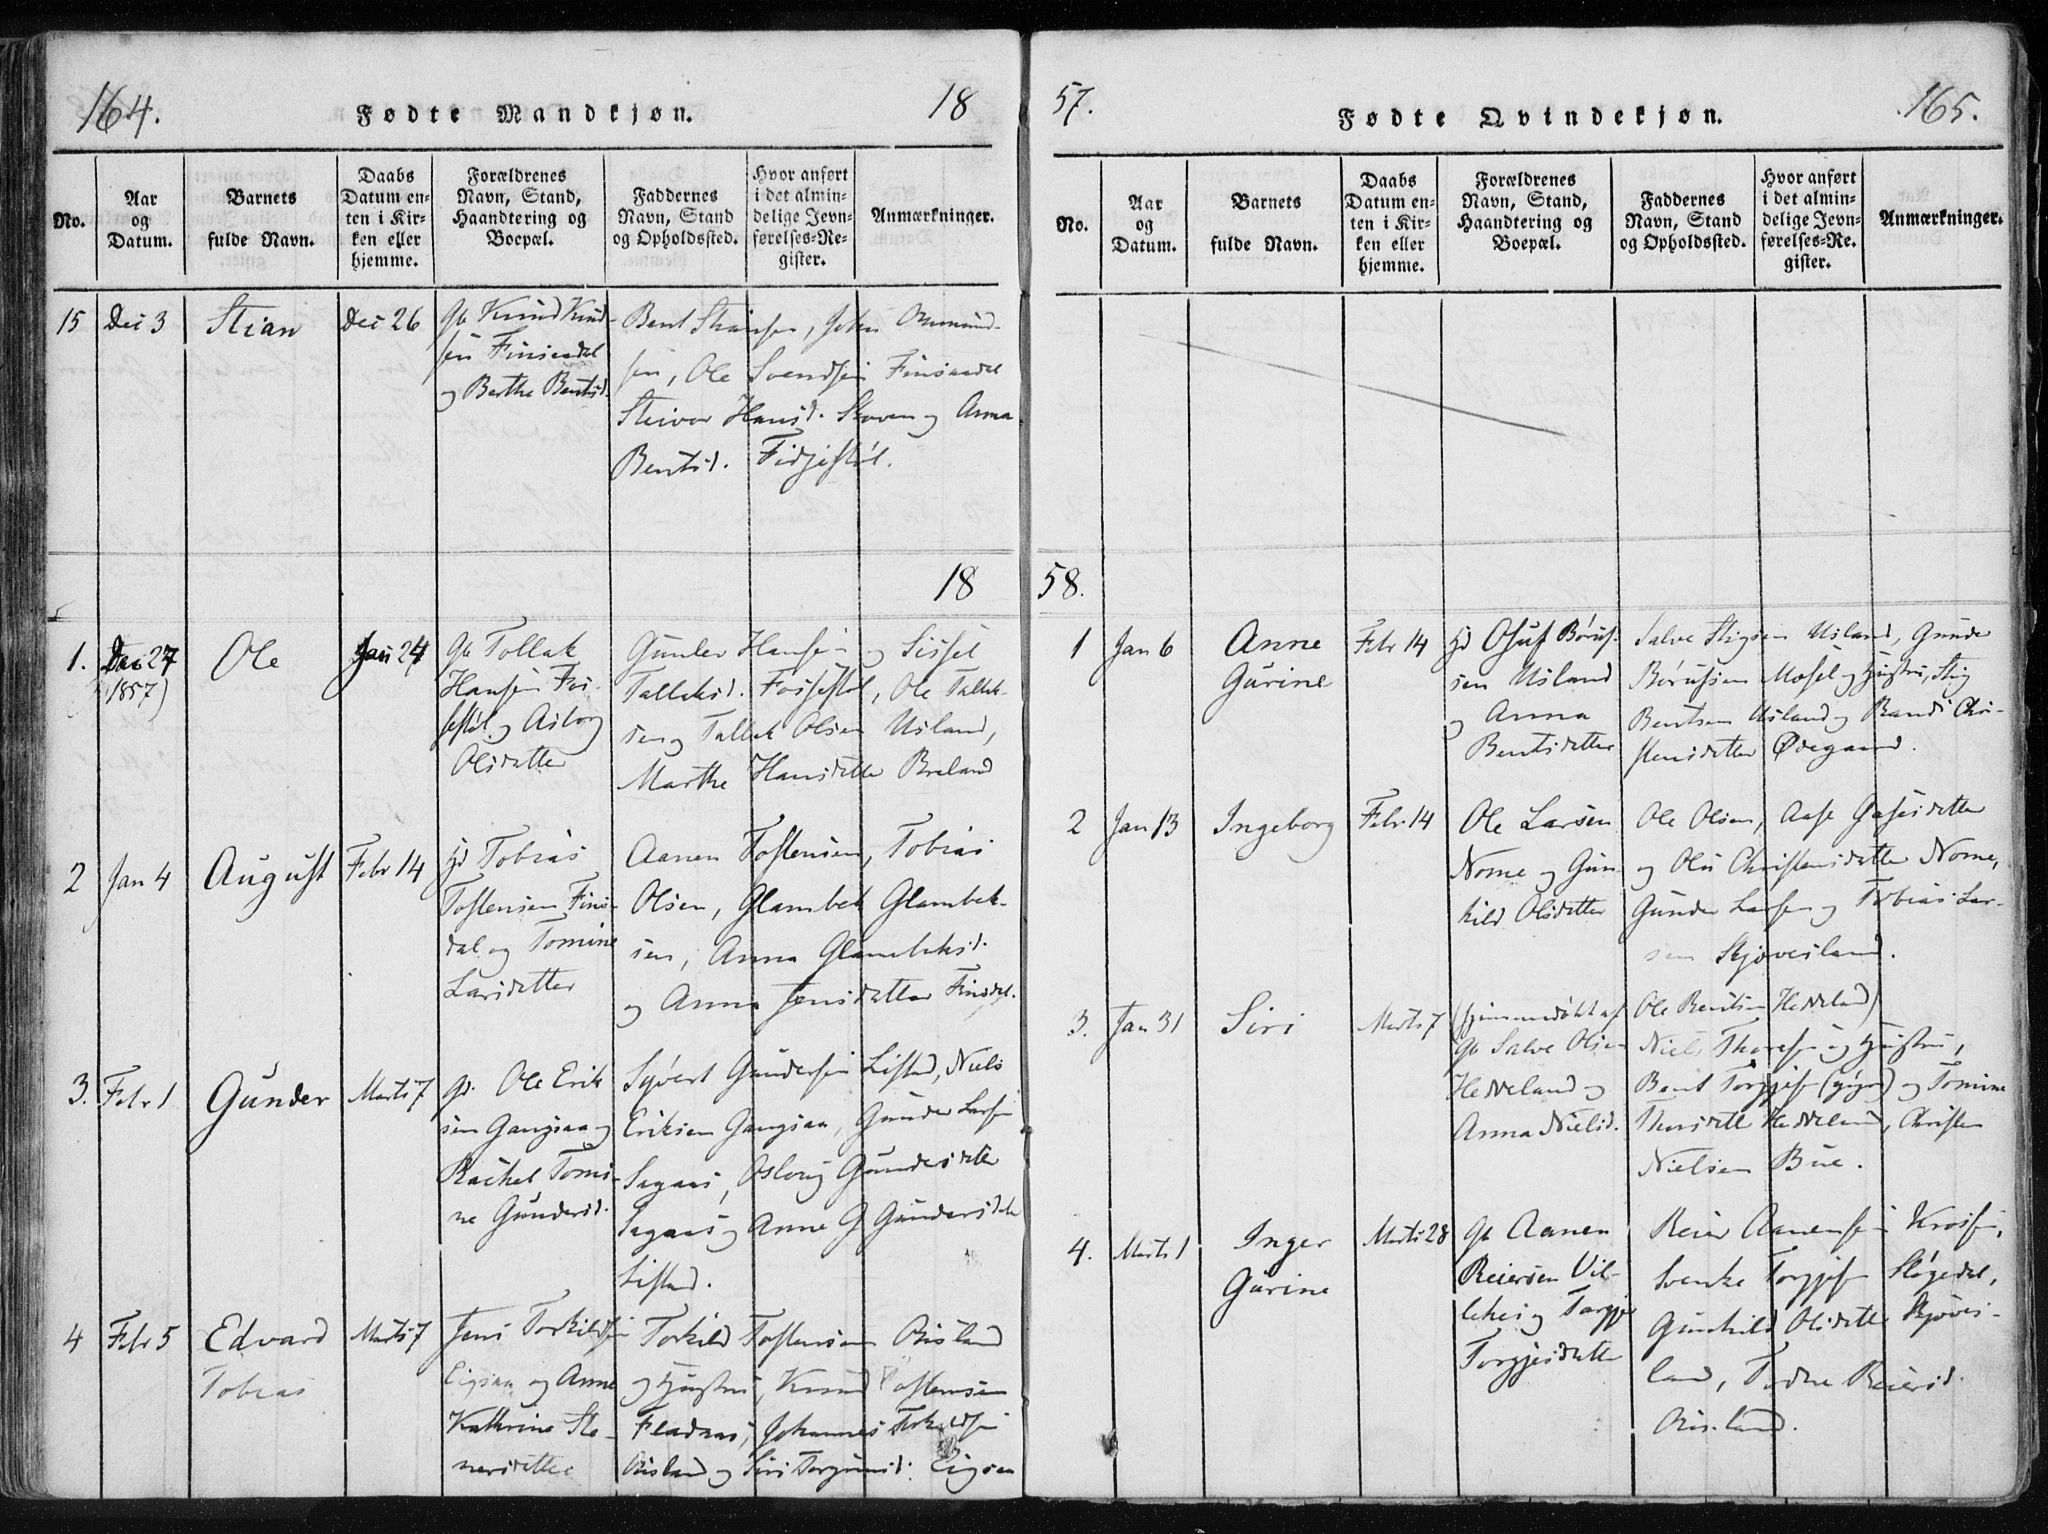 164.
Fødte Mandkjøn.
18
No.
Aar og Datum.
Barnets fulde Navn.
Daabs Datum enten i Kirken eller hjemme.
Forældrenes Navn, Stand, Haandtering og Boepæl.
Faddernes Navn, Stand og Opholdssted.
Hvor anført i det almindelige Jevnførelses-Register.
Anmærkninger.
15
Dec 3
Stian
Dec 26
Gb Knud Knud-
sen Finsadal
og Berthe Bentsd.
Bent Stiansen, John Omund-
sen, Ole Svendsen Finsaadal
Steivor Hansd. Skoven og Anna
Bentsd. Fidjestøl.
18
1.
Dec 27
(1857)
Ole
Jan 24
Gb Tollak
Hansen Fos-
sestøl og Asborg
Olsdatter
Gunder Hansen og Sissel
Tallaksd. Fossestøl, Ole Tallak-
sen og Tallak Olsen Usland,
Marthe Hansdatter Breland
2
Jan 4
August
Febr 14
jd Tobias
Tostensen Fins-
dal og Tomine
Larsdatter
Aanen Tostensen, Tobias
Olsen, Glambek Glambek-
sen, Anna Glambeksd.
og Anna Jensdatter Finsdal.
3.
Febr 1
Gunder
Marts 7
gd. Ole Erik
sen Gangsaa og
Rachel Tomi-
ne Gundersd.
Syvert Gundersen Listad, Niels
Eriksen Gangsaa, Gunder Larsen
Sagaas, Aslaug Gundersdatter
Sagaas og Anne G Gundersdatter
Listad.
4
Febr 5
Edvard
Tobias
Marts 7
Jens Torkildsen
Eigsaa og Anne
Kathrine Ste-
nersdatter
Torkild Tostensen Risland
og Hustru, Knud Tostensen
Fladaas, Johannes Torkildsen
Risland og Siri Torgimsd. Eigsaa
57.
Fødte Qvindekjøn.
165.
No.
Aar og Datum.
Barnets fulde Navn.
Daabs Datum enten i Kirken eller hjemme.
Forældrenes Navn, Stand, Haandtering og Boepæl.
Faddernes Navn, Stand og Opholdssted.
Hvor anført i det almindelige Jevnførelses-Register.
Anmærkninger.
58.
1
Jan 6
Anne
Gurine
Febr 14
jd Osuf Børuf-
sen Usland
og Anna
Bentsdatter
Salve Stigsen Usland, Gunder
Børufsen Mosel og Hustru, Stig
Bentsen Usland og Randi Chri-
stensdatter Ødegaard.
2
Jan 13
Ingeborg
Febr 14
Ole Larsen
Nome og Gun-
hild Olsdatter
Ole Olsen, Aase
og Christensdatter Nome,
Gunder Larsen og Tobias Lar-
sen Skjøvesland.
3.
Jan 31
Siri
Marts 7
(hjemmedøbt af
Gb Salve Olsen
Heddeland og
Anna Nielsd.
Ole Bentsen Heddeland)
Niels Thoresen og Hustru,
Bent Torgjesen og Tomine
Thorsdatter Heddeland, Christen
Nielsen Bue.
4.
Marts 1
Inger
Gurine
Marts 28
Gb Aanen
Reiersen Vil-
lekes og Torgje
Torgjesdatter
Reier Aanensen
Svenke Torgjesen Støgedal,
Gunhild Olsdatter Skjøves-
land, Todne Reiersd.
Risland.